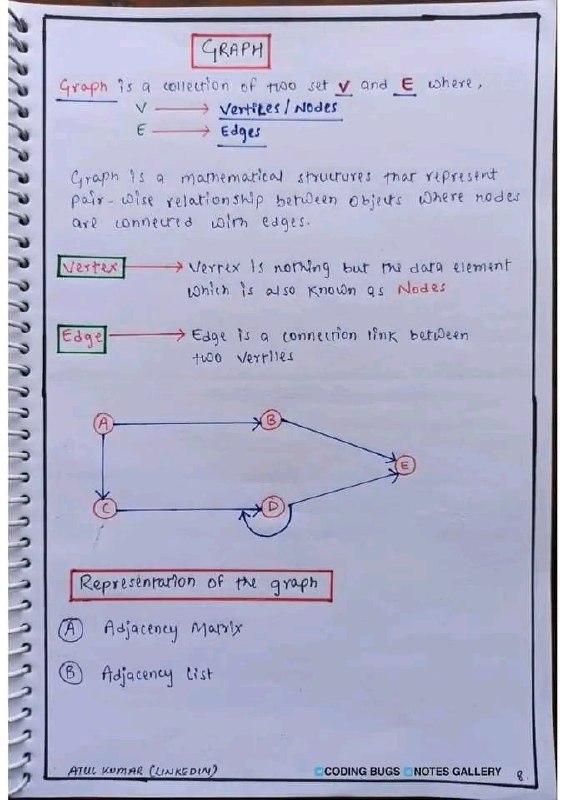 GRAPH
Graph is a collection of two set V and E where,
V → Vertiles / Nodes
E → Edges
Graph is a mathematical structures that represent
pair-wise relationship between objects where nodes
are connected with edges.
Vertex → Vertex is nothing but the data element
which is also known as Nodes
Edge → Edge is a connection link between
two vertiles
A B
E
C D
Representation of the graph
A Adjacency Matrix
B Adjacency List
ATUL KUMAR (LINKEDIN) CODING BUGS NOTES GALLERY 8